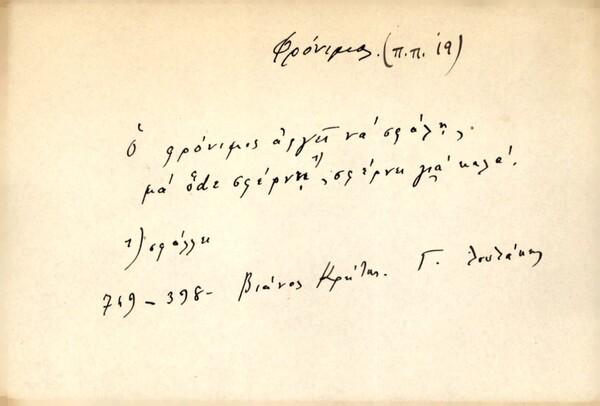 Φρόνιμος. (π.π. 19)
Ὁ φρόνιμος ἀργεῖ νά σφάλῃ,
μά ὅdε σφέρνῃ 1), σφέρνει γιά καλά.
1) σφάλλει
749 – 398 – Βιάνος Κρήτης. Γ.